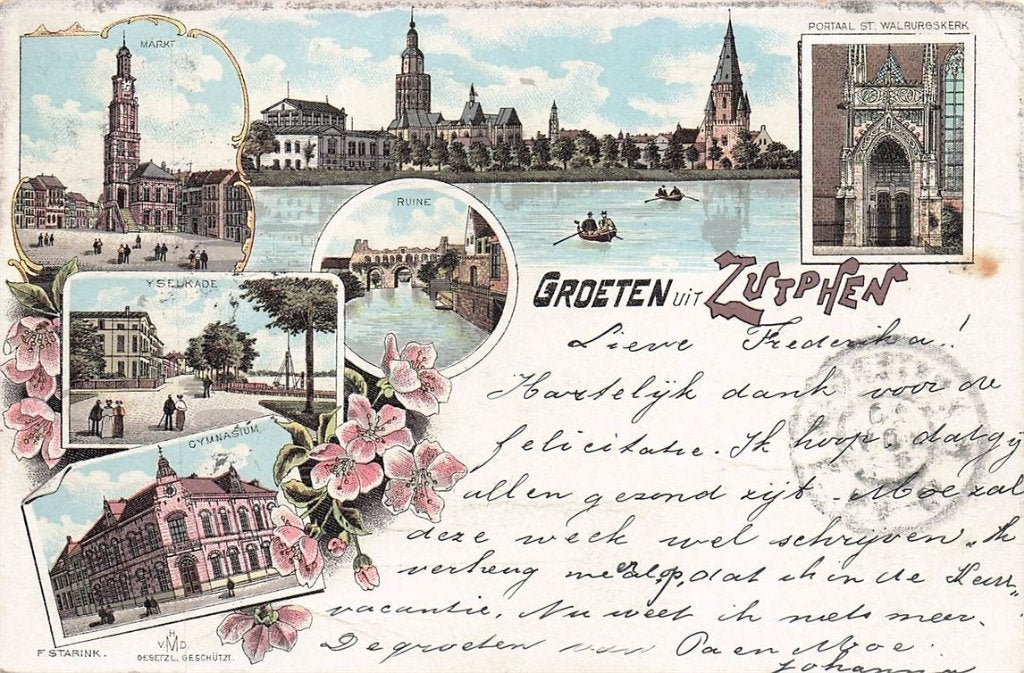 MARKT
PORTAAL ST. WALBURGSKERK
RUINE
YSELKADE
GYMNASIUM
GROETEN UIT ZUTPHEN
Lieve Frederika!!
Hartelijk dank voor de
felicitatie. Ik hoop, dat gij
allen gezond zijt. Moe zal
deze week wel schrijven. Ik
verheug me er op, dat ik in de Kerst
vacantie. Nu weet ik niets meer.
De groeten van Pa en Moe.
Johanna
F STARINK.
H
V.M.D.
GESETZL. GESCHÜTZT.